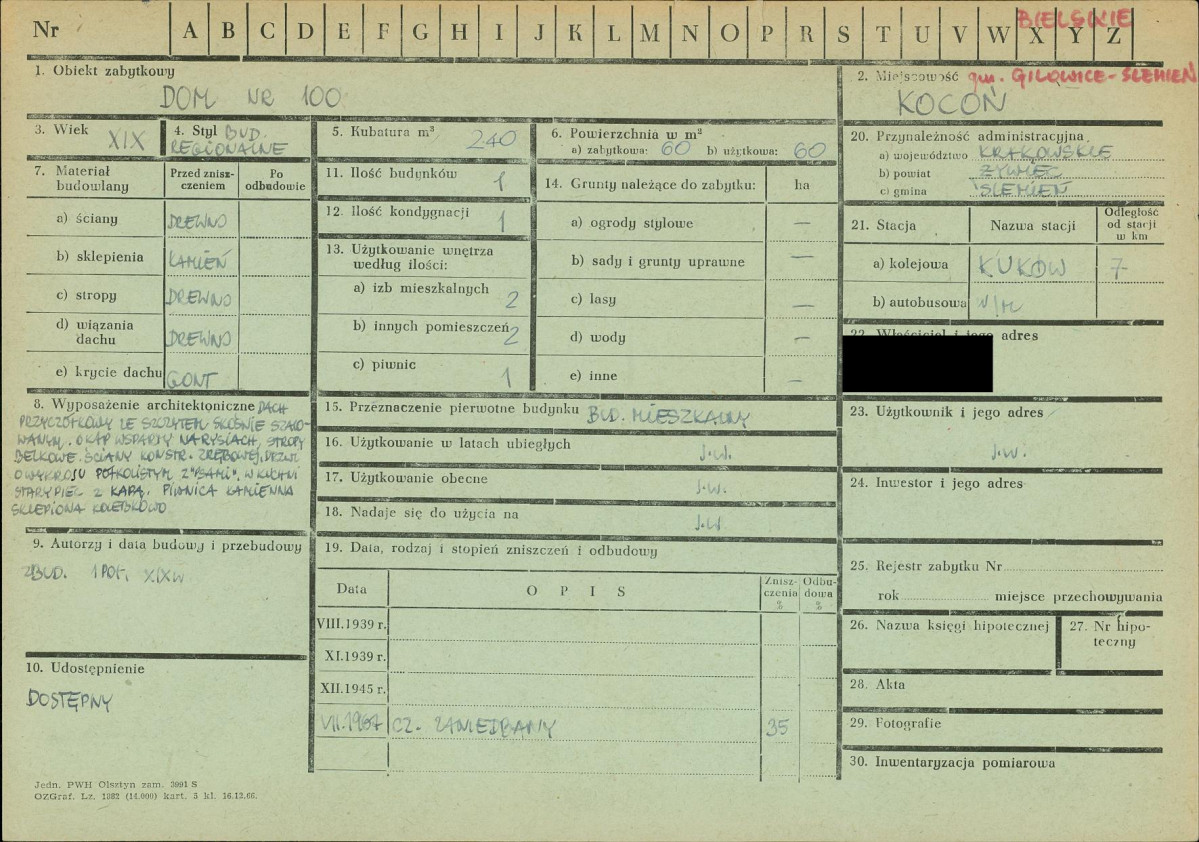 BIELSKIE
Nr A B C D E F G H I J K L M N O P R S T U V W X Y Z
1. Obiekt zabytkowy
DOM NR 100
2. Miejscowość gm. GILOWICE-ŚLEMIEŃ
KOCOŃ
3. Wiek XIX
4. Styl BUD. REGIONALNE
5. Kubatura m³ 240
6. Powierzchnia w m²
a) zabytkowa: 60 b) użytkowa: 60
7. Materiał budowlany
Przed zniszczeniem
Po odbudowie
a) ściany DREWNO
b) sklepienia KAMIEŃ
c) stropy DREWNO
d) wiązania dachu DREWNO
e) krycie dachu GONT
8. Wyposażenie architektoniczne DACH
PRZYCZÓŁKOWY ZE SZCZYTEM SKOŚNIE SZALO-
WANYM. OKAP WSPARTY NA RYSIACH, STROPY
BELKOWE. ŚCIANY KONSTR. ZRĘBOWEJ. DRZWI
O WYKROJU PÓŁKOLISTYM Z "PSAMI". W KUCHNI
STARY PIEC Z KAPĄ. PIWNICA KAMIENNA
SKLEPIONA KOLEBKOWO
9. Autorzy i data budowy i przebudowy
ZBUD. 1 POŁ. XIX W
10. Udostępnienie
DOSTĘPNY
11. Ilość budynków 1
12. Ilość kondygnacji 1
13. Użytkowanie wnętrza według ilości:
a) izb mieszkalnych 2
b) innych pomieszczeń 2
c) piwnic 1
14. Grunty należące do zabytku: ha
a) ogrody stylowe —
b) sady i grunty uprawne —
c) lasy —
d) wody —
e) inne —
15. Przeznaczenie pierwotne budynku BUD. MIESZKALNY
16. Użytkowanie w latach ubiegłych J.W.
17. Użytkowanie obecne J.W.
18. Nadaje się do użycia na J.W
19. Data, rodzaj i stopień zniszczeń i odbudowy
Data OPIS Zniszczenia % Odbudowa %
VIII.1939 r.
XI.1939 r.
XII.1945 r.
VII.1967 CZ. ZANIEDBANY 35
20. Przynależność administracyjna
a) województwo KRAKOWSKIE
b) powiat ŻYWIEC
c) gmina ŚLEMIEŃ
21. Stacja Nazwa stacji Odległość od stacji w km
a) kolejowa KUKÓW 7
b) autobusowa W/M
22. Właściciel i jego adres
23. Użytkownik i jego adres
J.W.
24. Inwestor i jego adres
25. Rejestr zabytku Nr
rok miejsce przechowywania
26. Nazwa księgi hipotecznej
27. Nr hipoteczny
28. Akta
29. Fotografie
30. Inwentaryzacja pomiarowa
Jedn. PWH Olsztyn zam. 3991 S
OZGraf. Lz. 1982 (14.000) kart. 5 kl. 16.12.66.